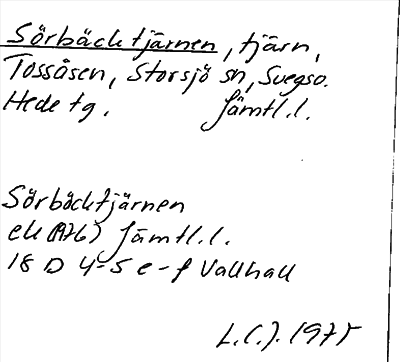 Sörbäcktjärnen, tjärn,
Tossåsen, Storsjö sn, Svegs o.
Hede tg. Jämtl.l.
Sörbäcktjärnen
ek (1976) Jämtl.l.
18 D 4-5 e-f Vallhall
L.C.J. 1975